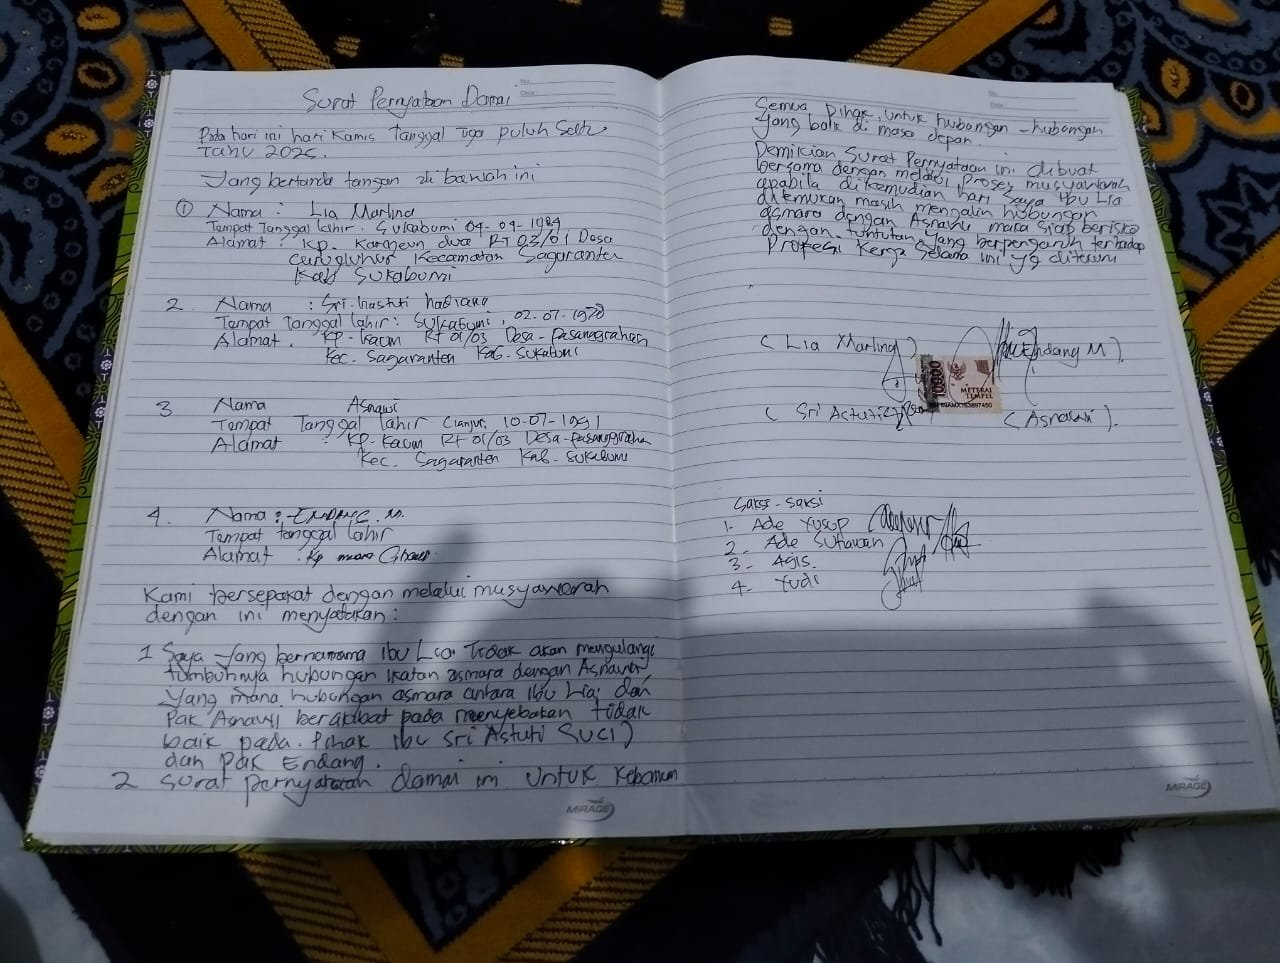 Surat Pernyataan Damai
No.
Date.
Pada hari ini hari Kamis Tanggal Tiga puluh
Tahu 2025.
Yang bertanda tangan di bawah ini
1 Nama : Lia Marlina
Tempat Tanggal lahir. Sukabumi 09-09-1984
Alamat : Kp. Karangeun dua RT 03/01 Desa
Curugluhur Kecamatan Sagaranten
Kab Sukabumi
2. Nama : Sri hastuti
Tempat Tanggal lahir : Sukabumi, 02-07-1978
Alamat. Kp. Kaum RT 01/03 Desa - Pasanggrahan
Kec. Sagaranten Kab. Sukabumi
3 Nama Asnawi
Tempat Tanggal lahir Cianjur, 10-07-1991
Alamat : Kp. Kaum RT 01/03 Desa - Pasanggrahan
Kec. Sagaranten Kab. Sukabumi
4. Nama : Endang. M.
Tempat tanggal lahir
Alamat : Kp muara
Kami bersepakat dengan melalui musyawarah
dengan ini menyatakan :
1 Saya yang bernama ibu Lia Tidak akan mengulangi
tumbuhnya hubungan ikatan asmara dengan Asnawi
yang mana hubungan asmara antara ibu Lia. dan
Pak Asnawi berakibat pada menyebakan tidak
baik pada. Pihak ibu Sri Astuti Suci)
dan Pak Endang.
2 Surat pernyataan damai ini untuk
MIRAGE
No.
Date.
Semua Pihak, untuk hubungan - hubungan
yang baik di masa depan.
Demikian Surat Pernyataan ini dibuat
bersama dengan melalui Proses musyawarah
apabila dikemudian hari saya Ibu Lia
ditemukan masih mengalin hubungan
asmara dengan Asnawi maka siap berisiko
dengan tuntutan yang berpengaruh terhadap
Profesi Kerja selama ini yg ditemui
( Lia Marlina ) Endang M ).
10000
METERAI
TEMPEL
( Sri Astuti ) ( Asnawi ).
Saksi - Saksi
1. Ade Yusup
2. Ade Suhawan
3. Agis.
4. Yudi
MIRAGE